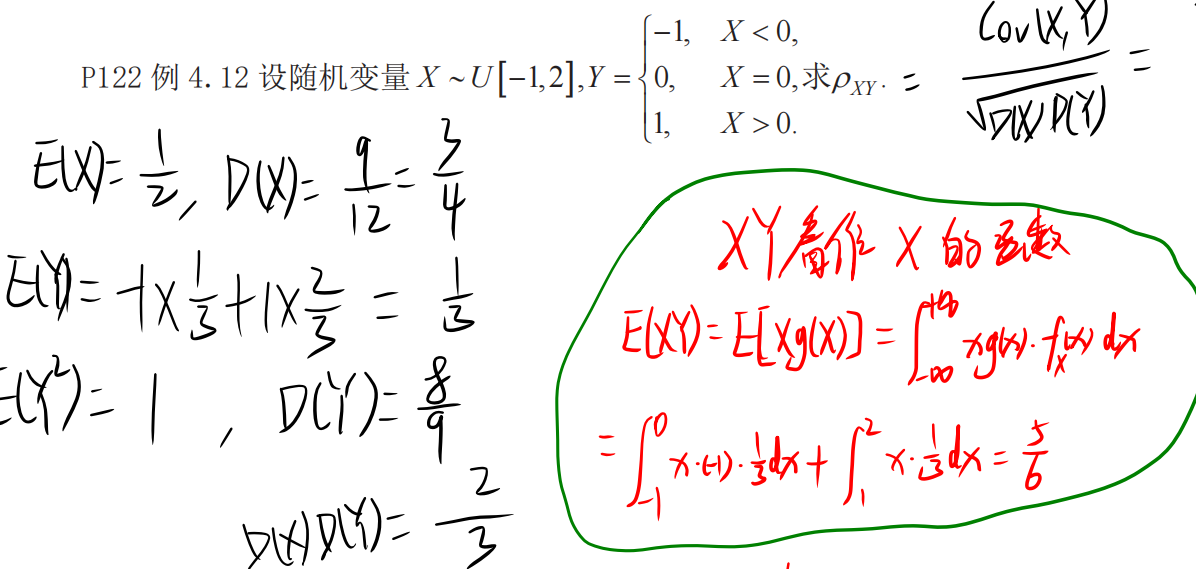 P122 例 4.12 设随机变量 X ~ U[-1,2], Y = { -1, X < 0, 0, X = 0, 1, X > 0. 求ρ_XY. = Cov(X,Y) / √D(X)D(Y) =
E(X) = 1/2, D(X) = 9/12 = 3/4
E(Y) = -1×1/3 + 1×2/3 = 1/3
E(Y²) = 1, D(Y) = 8/9
D(X)D(Y) = 2/3
XY看作 X 的函数
E(XY) = E[Xg(X)] = ∫_{-∞}^{+∞} xg(x)·f_X(x) dx
= ∫_{-1}^{0} x·(-1)·1/3 dx + ∫_{1}^{2} x·1/3 dx = 5/6